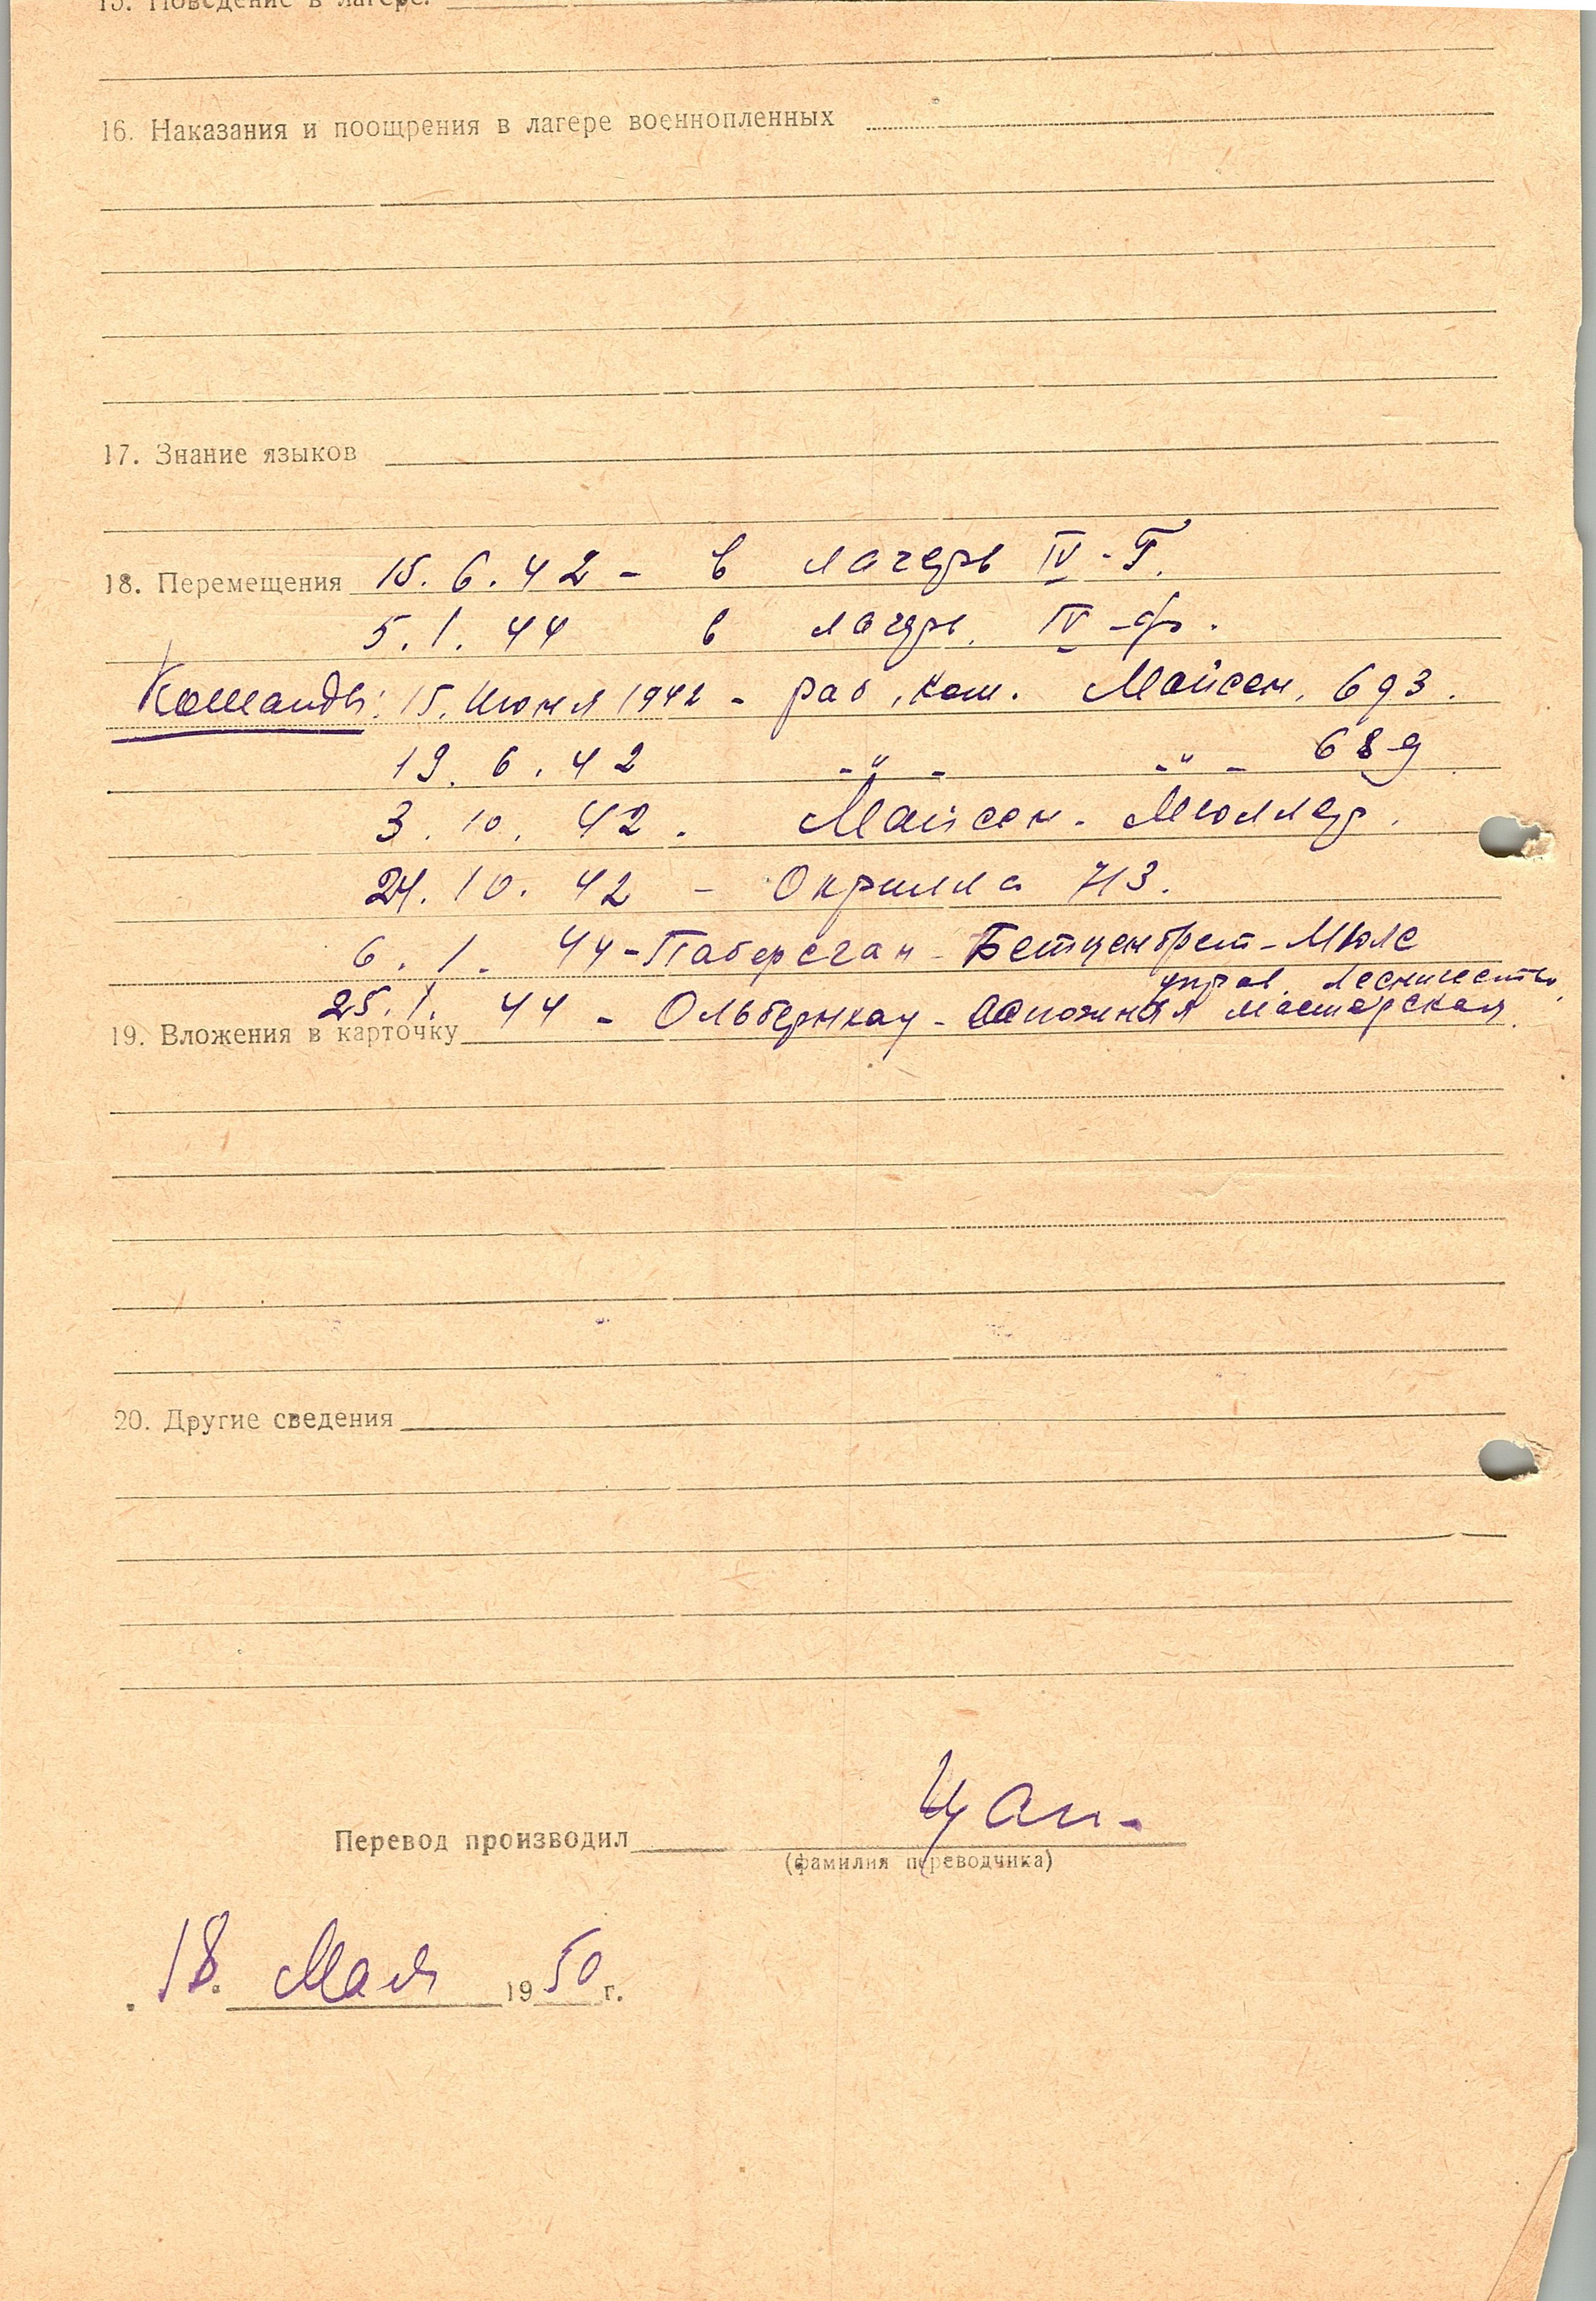 15. Поведение в лагере.
16. Наказания и поощрения в лагере военнопленных
17. Знание языков
18. Перемещения 15. 6. 42 - в лагерь IV - Г.
5. 1. 44 в лагерь IV - ф.
Команды: 15. Июня 1942 - раб. ком. Майсен. 693.
19. 6. 42 - " - - " - 689
3. 10. 42. Майсен - Мюллер.
24. 10. 42 - Окрилла 713.
6. 1. 44 - Паберсган - Бетценбрет - Мюле
управ. Лесничество
25. 1. 44 - Ольбернхау - Сапожная мастерская.
19. Вложения в карточку
20. Другие сведения
Перевод производил Цап.
(фамилия переводчика)
18. Мая 1950 г.